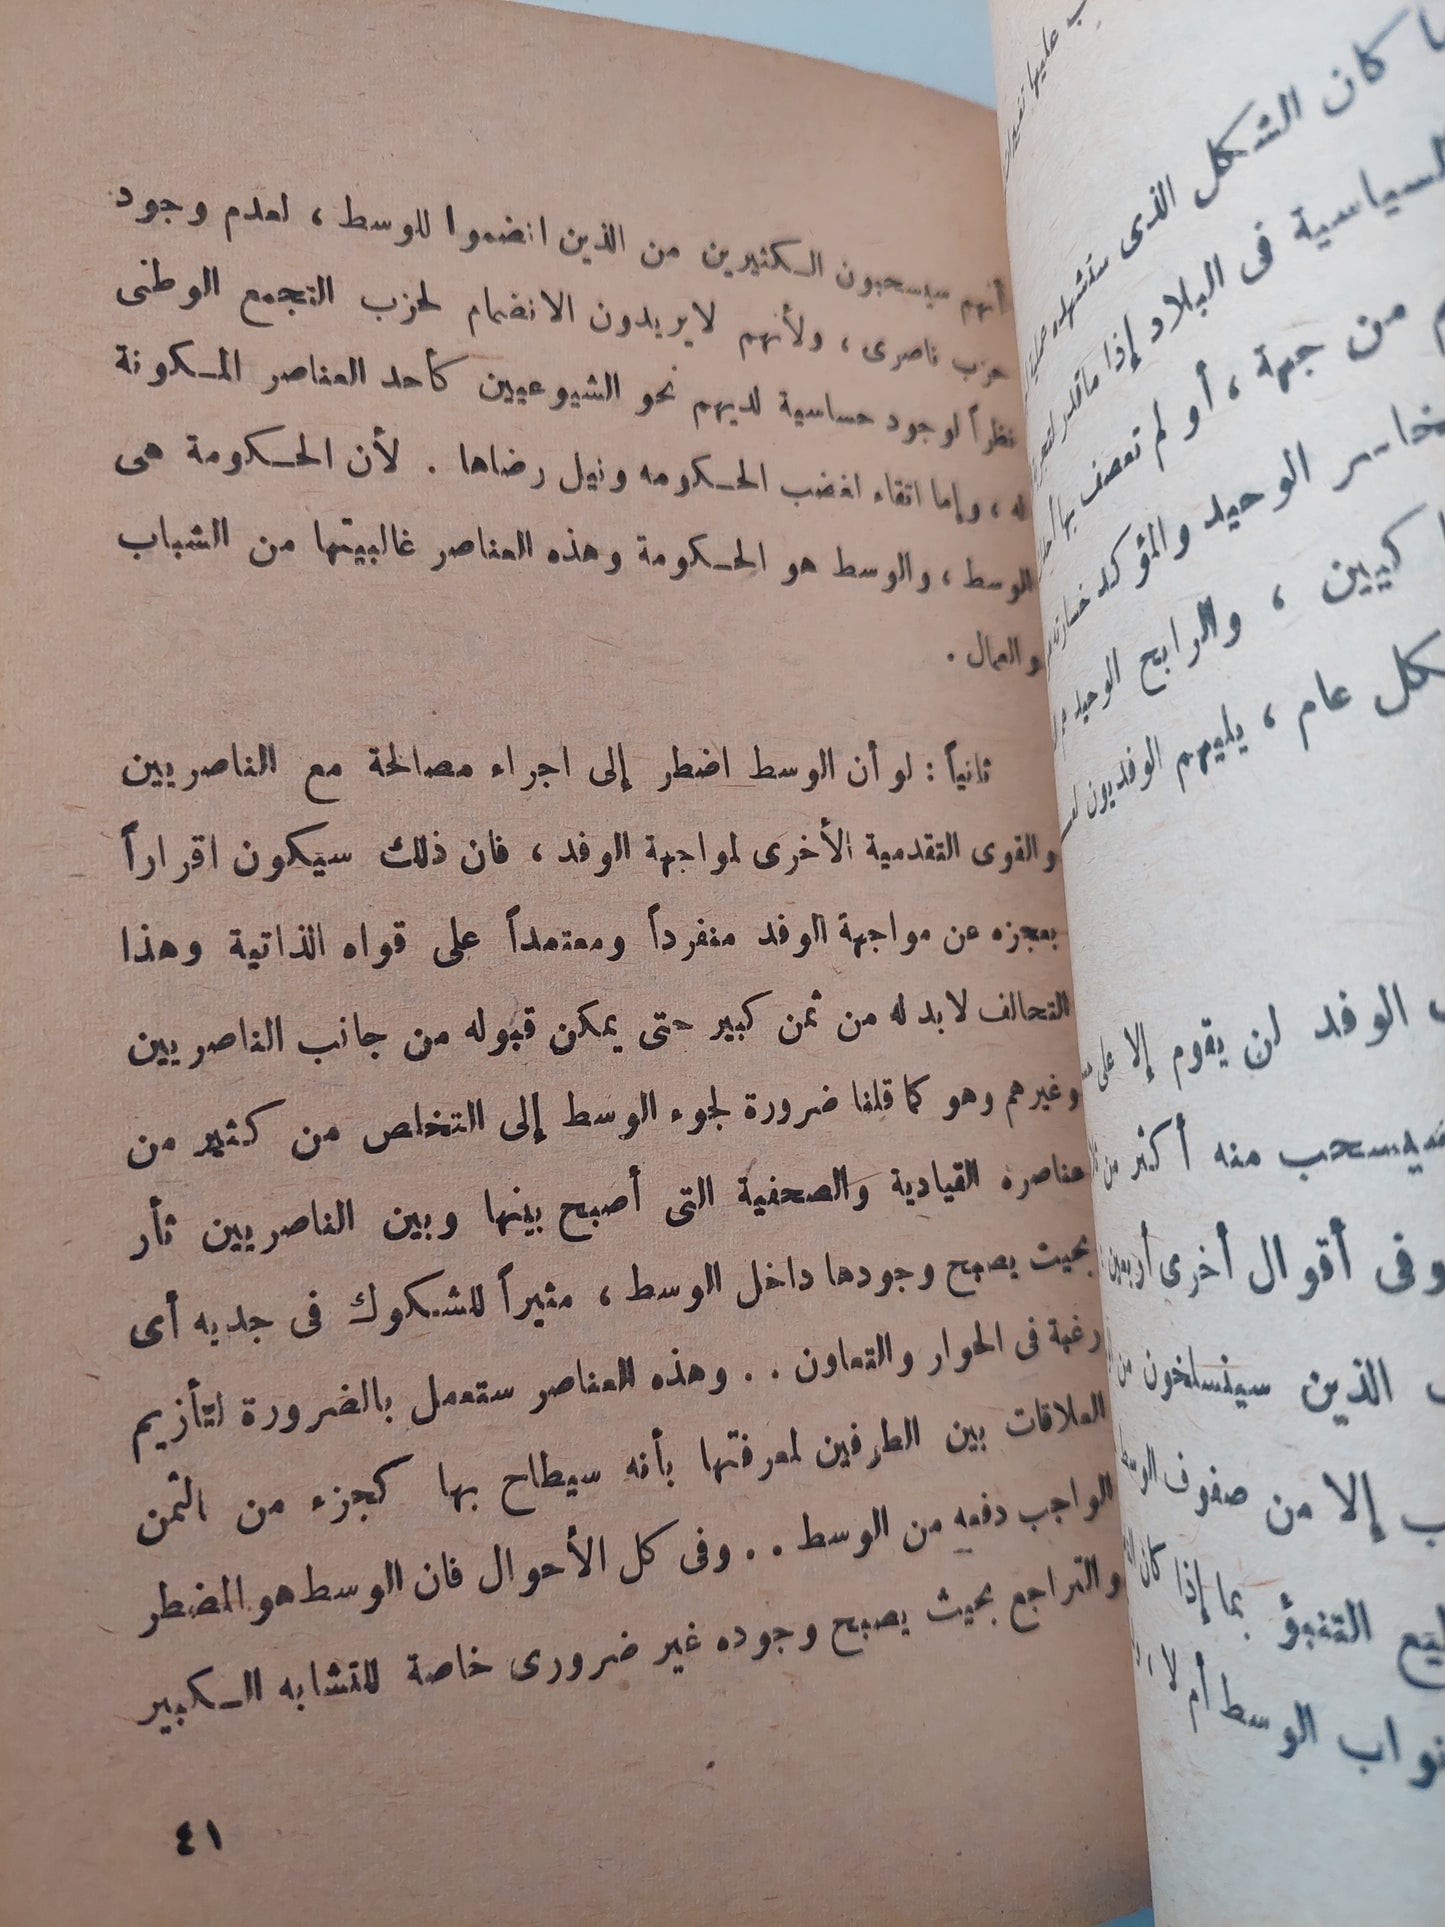 أنهم سيسحبون الكثيرين من الذين انضموا للوسط ، لعدم وجود
حزب ناصرى ، ولأنهم لايريدون الانضمام لحزب التجمع الوطنى
نظراً لوجود حساسية لديهم نحو الشيوعيين كأحد العناصر المكونة
له ، وإما اتقاء لغضب الحكومه ونيل رضاها . لأن الحكومة هى
الوسط ، والوسط هو الحكومة وهذه العناصر غالبيتها من الشباب
والعمال .
ثانياً : لو أن الوسط اضطر إلى اجراء مصالحة مع الناصريين
والقوى التقدمية الأخرى لمواجهة الوفد ، فان ذلك سيكون اقراراً
بعجزه عن مواجهة الوفد منفرداً ومعتمداً على قواه الذاتية وهذا
التحالف لابد له من ثمن كبير حتى يمكن قبوله من جانب الناصريين
وغيرهم وهو كما قلنا ضرورة لجوء الوسط إلى التخلص من كثير من
عناصره القيادية والصحفية التى أصبح بينها وبين الناصريين ثأر
بحيث يصبح وجودها داخل الوسط ، مثيراً للشكوك فى جديه أى
رغبة فى الحوار والتعاون . . وهذه العناصر ستعمل بالضرورة لتأزيم
العلاقات بين الطرفين لمعرفتها بأنه سيطاح بها كجزء من الثمن
الواجب دفعه من الوسط . . وفى كل الأحوال فان الوسط هو المضطر
والتراجع بحيث يصبح وجوده غير ضرورى خاصة للتشابه الكبير
٤١
كان الشكل الذى ستشهده
السياسية فى البلاد إذا ماقدر
من جهة ، أو لم تعصف بها
الوحيد والمؤكد
، والرابح الوحيد
عام ، يليهم الوفديون
الوفد لن يقوم إلا على
منه أكثر من
وفى أقوال أخرى أربعين
الذين سينسلخون من
إلا من صفوف الوسط
التنبؤ بما إذا كان
نواب الوسط أم لا ،